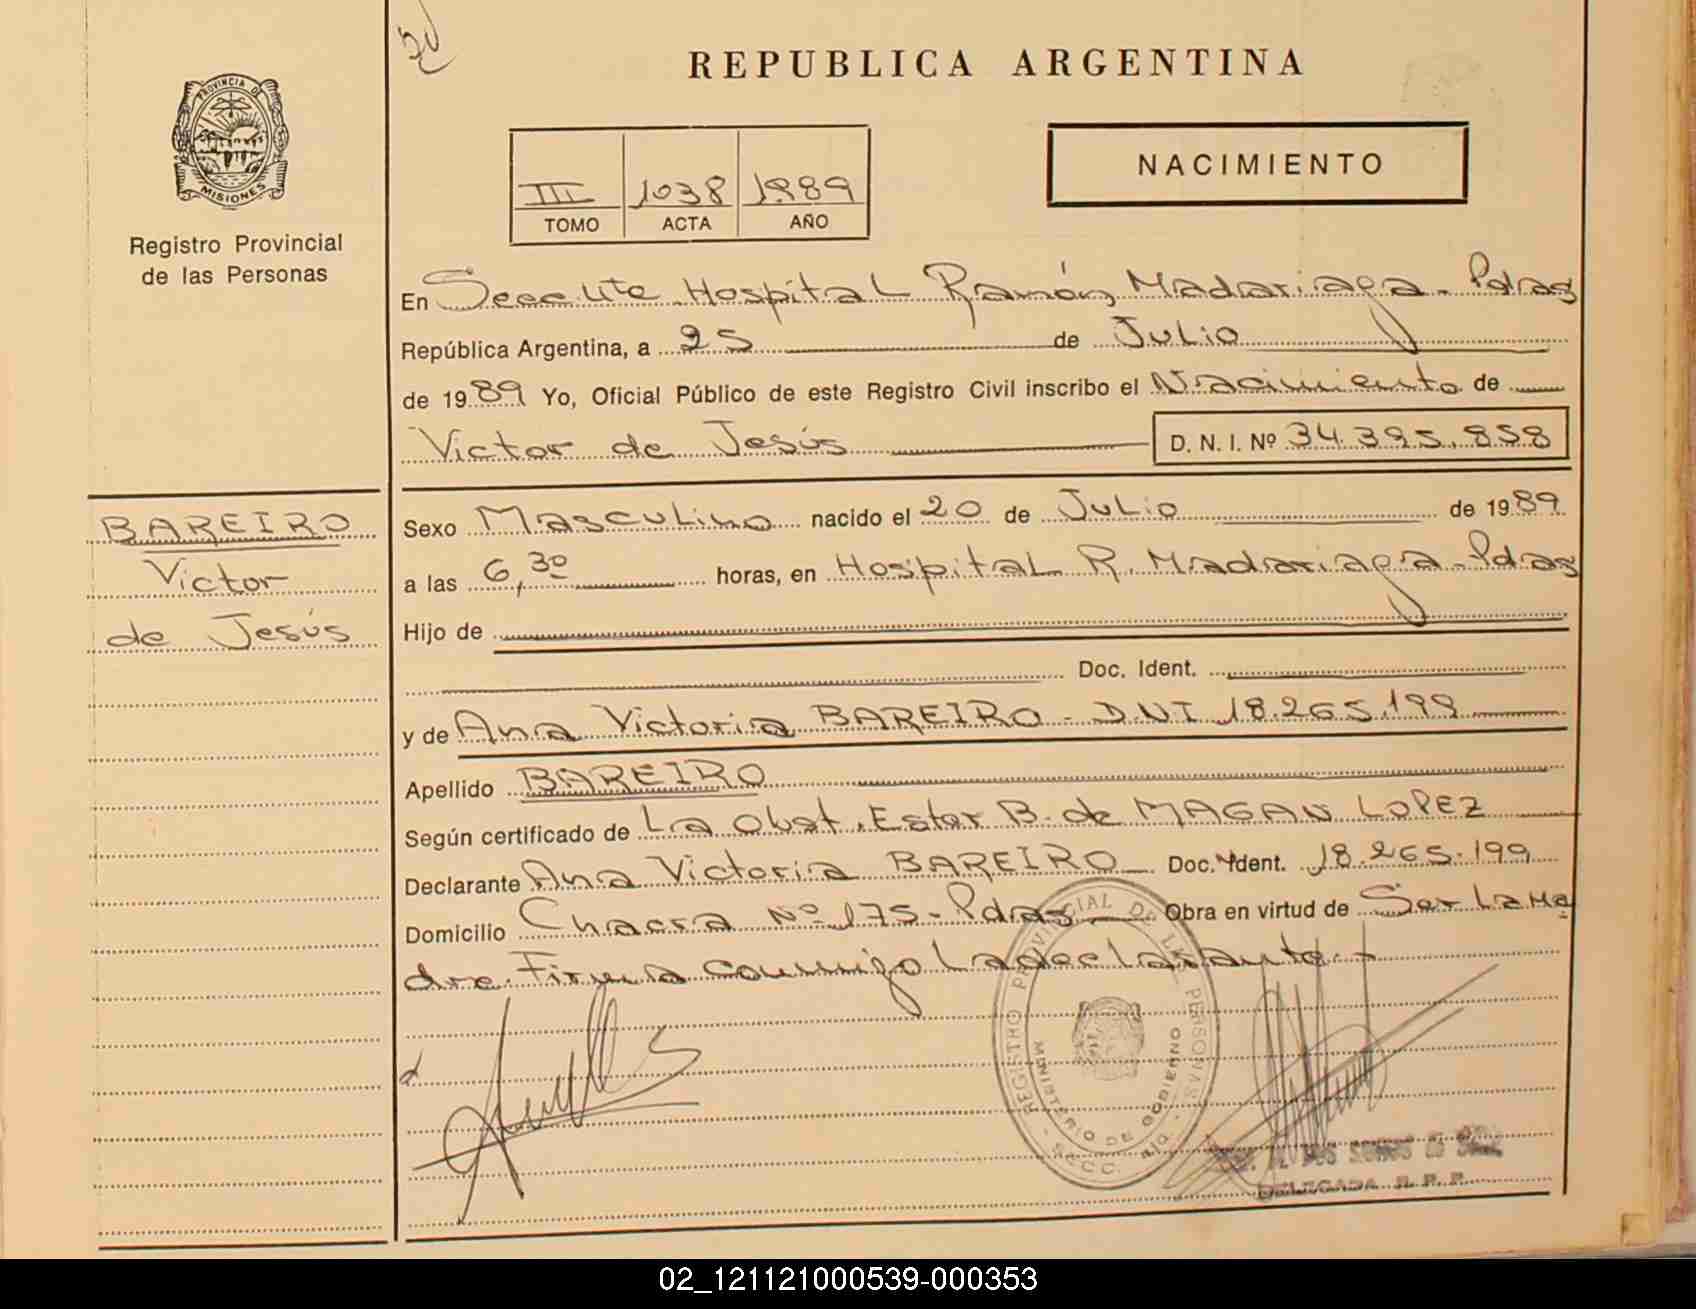 PROVINCIA DE
MISIONES
Registro Provincial
de las Personas
BAREIRO
Victor
de Jesús
REPUBLICA ARGENTINA
III 1038 1989
TOMO ACTA AÑO
NACIMIENTO
En Secc Ute Hospital Ramón Madariaga - Pdas
República Argentina, a 25 de Julio
de 1989 Yo, Oficial Público de este Registro Civil inscribo el Nacimiento de
Victor de Jesús D. N. I. Nº 34.395.858
Sexo Masculino nacido el 20 de Julio de 1989
a las 6,30 horas, en Hospital R. Madariaga - Pdas
Hijo de
Doc. Ident.
y de Ana Victoria BAREIRO - DNI 18.265.199
Apellido BAREIRO
Según certificado de La Obst. Ester B. de MAGAN LOPEZ
Declarante Ana Victoria BAREIRO Doc. Ident. 18.265.199
Domicilio Chacra Nº 175 - Pdas Obra en virtud de Ser La Ma
dre. Firma conmigo La declarante.
REGISTRO PROVINCIAL DE LAS PERSONAS
MINISTERIO DE GOBIERNO
DELEGADA R. P. P.
02_121121000539-000353